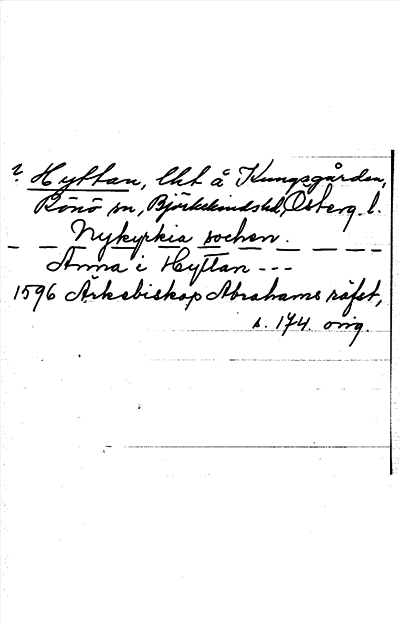 ? Hyttan, lht å Kungsgården,
Rönö sn, Björkekinds hd, Österg. l.
Nykyrkia sochen.
Anna i Hyttan ---
1596 Ärkebiskop Abrahams räfst,
s. 174. orig.